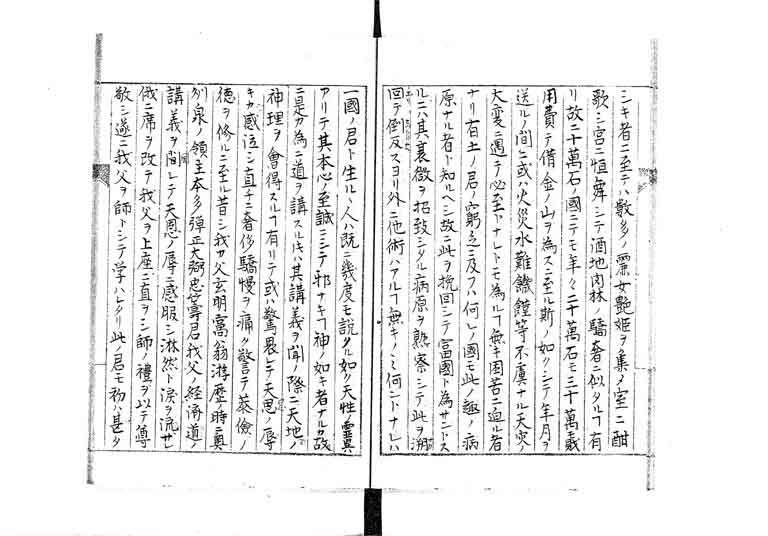 シキ者ニ至テハ數多ノ麗女艶姫ヲ集メ室ニ酣
歌シ宮ニ恒舞シテ酒地肉林ノ驕奢ニ似タルヿ有
リ故ニ十萬石ノ國ニテモ年々二十萬石モ三十萬モ
用費テ借金ノ山ヲ為スニ至ル斯ノ如クシテ年月ヲ
送ルノ間ニ或ハ火災水難饑饉等不虞ナル天災ノ
大変ニ遇テ必至トナレトモ為ルヿ無キ困苦ニ迫ル者
ナリ有土ノ君ノ窮乏ニ及フハ何レノ國モ此ノ趣ノ病
原ナル者ト知ルヘシ故ニ此ヲ挽回シテ富國ト為サントス
ルニハ其衰微ヲ招致シタル病原ヲ熟察シテ此ヲ溯
回テ倒反スヨリ外ニ他術ハアルヿ無キノミ何ントナレハ
一國ノ君ト生ルヽ人ハ既ニ幾度モ説タル如ク天性靈異
アリテ其本心ノ至誠ニシテ邪ナキヿ神ノ如キ者ナルカ故
ニ是カ為ニ道ヲ講スルキハ其講義ヲ聞ノ際ニ天地ノ
神理ヲ會得スルヿ有リテ或ハ驚畏レテ天恩ノ辱
キカ感泣シ直チニ奢侈驕慢ヲ痛ク警テ恭儉ノ
徳ヲ修ルニ至ル昔シ我カ父玄明窩翁游歴ノ時ニ奥
州泉ノ領主本多彈正大弼忠籌君我父ノ経濟道ノ
講義ヲ聞レテ天恩ノ辱ニ感服シ淋然ト涙ヲ流サレ
俄ニ席ヲ改テ我父ヲ上座ニ直ヲシ師ノ禮ヲ以テ尊
敬シ遂ニ我父ヲ師トシテ学ハレタリ此ノ君モ初ハ甚タ